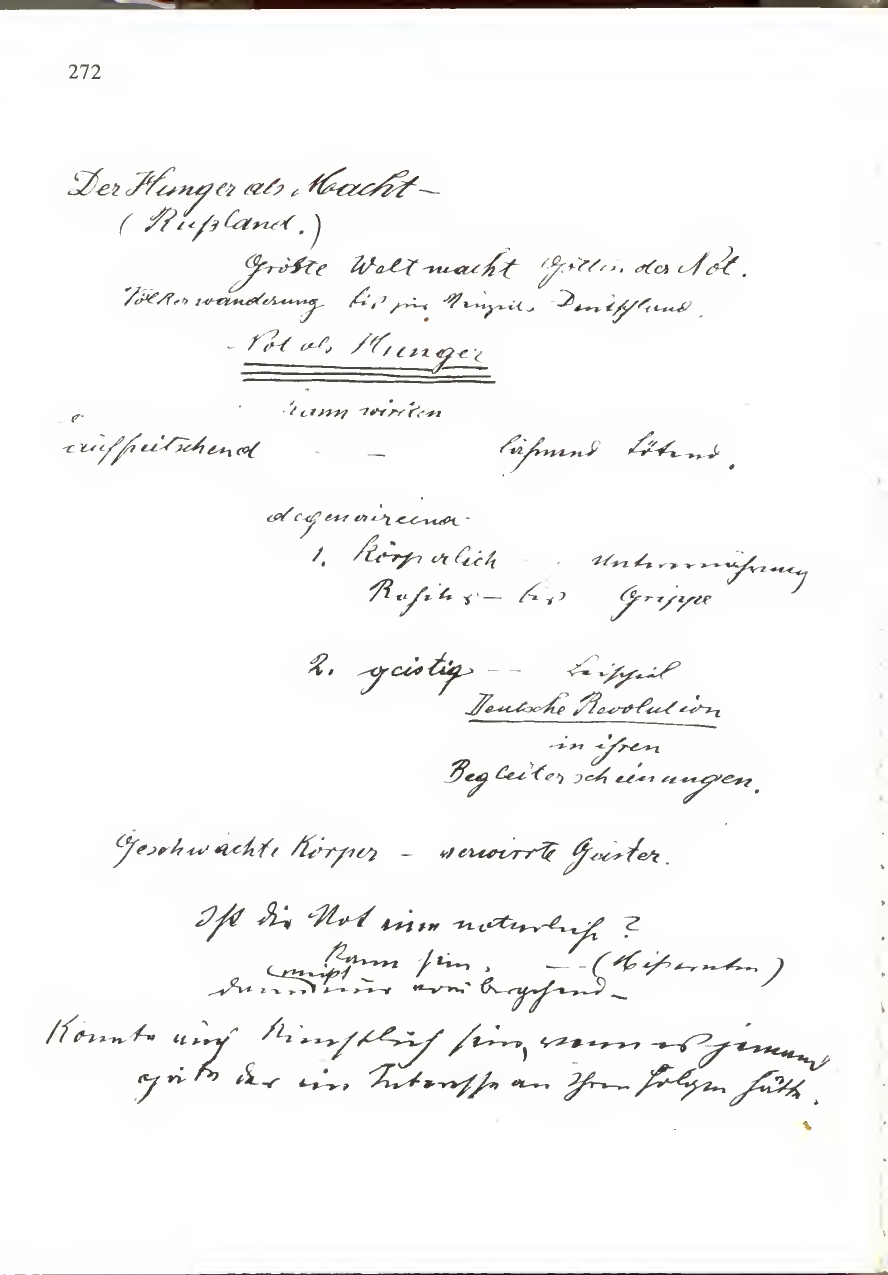 272
Der Hunger als Macht —
(Rußland.)
Größte Weltmacht Göttin der Not.
Völkerwanderung bis zur Deutschland.
- Not als Hunger
kann wirken
aufpeitschend — lähmend tötend.
degenerierend
1. Körperlich Unterernährung
— bis Grippe
2. geistig — — Beispiel
Deutsche Revolution
in ihren
Begleiterscheinungen.
Geschwächte Körper — verwirrte Geister.
Ist die Not eine natürliche?
Kann sein. — — (Mißernten)
(meist
dann nur vorübergehend —
Könnte auch künstlich sein, wenn es jemand
gäbe der ein Interesse an ihren Folgen hätte.